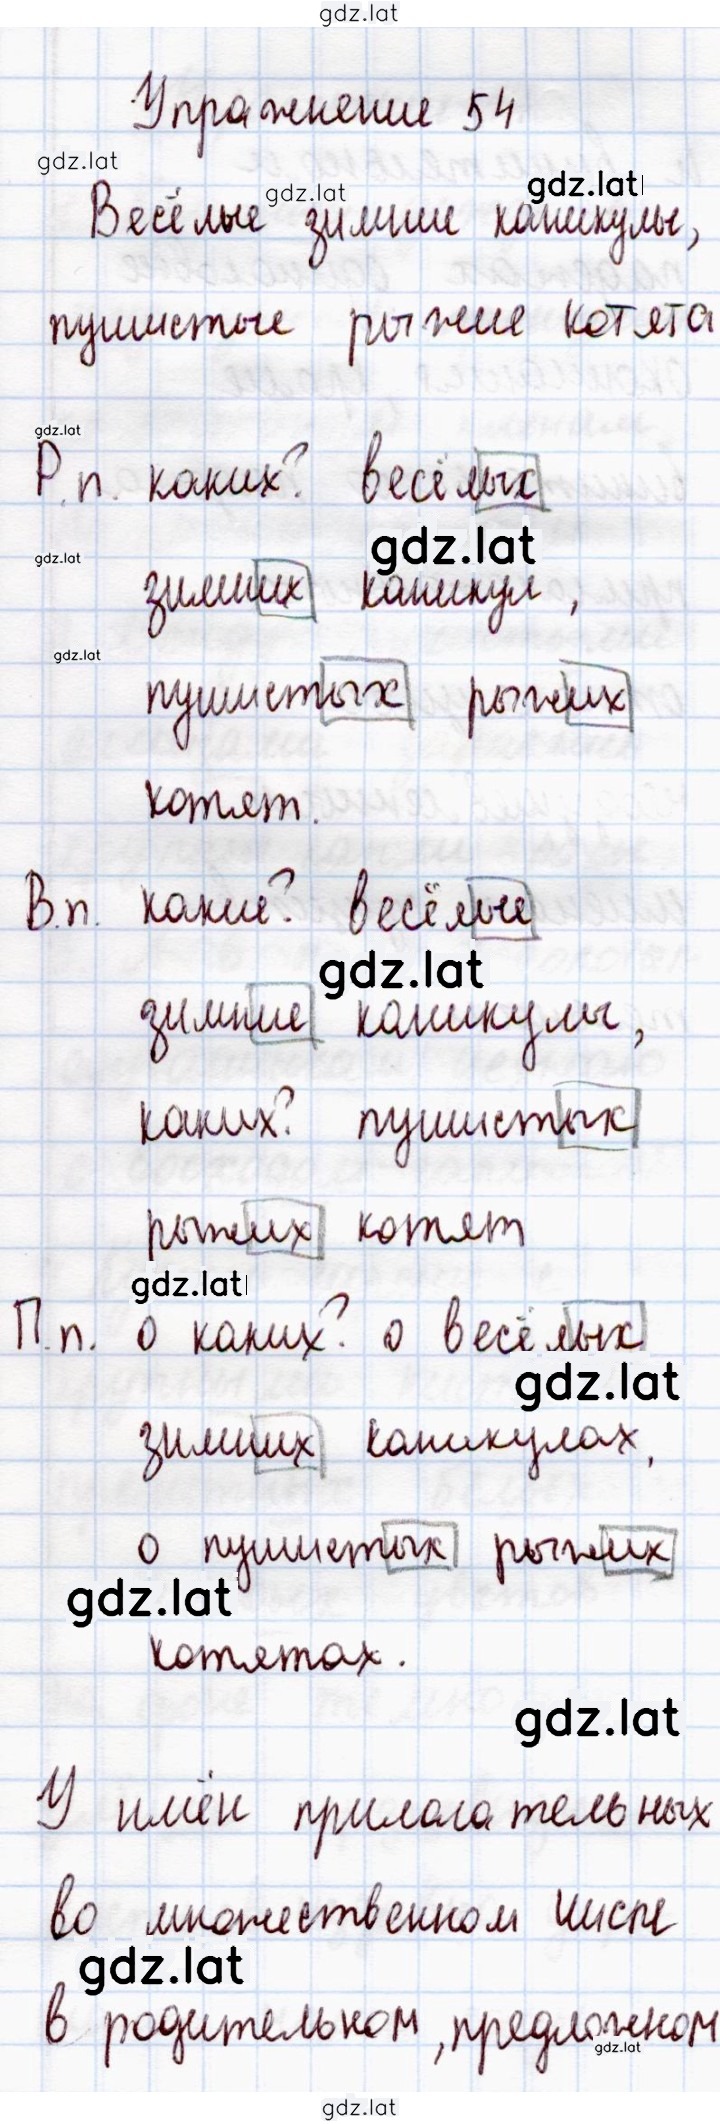 gdz.lat
Упражнение 54
gdz.lat
gdz.lat
gdz.lat
Весёлые зимние каникулы,
пушистые рыжие котята
gdz.lat
Р.п. каких? весёлых
gdz.lat
gdz.lat
зимних каникул,
gdz.lat
пушистых рыжих
котят.
В.п. какие? весёлые
gdz.lat
зимние каникулы,
каких? пушистых
рыжих котят
gdz.lat
П.п. о каких? о весёлых
gdz.lat
зимних каникулах,
о пушистых рыжих
gdz.lat
котятах.
gdz.lat
У имён прилагательных
во множественном числе
gdz.lat
в родительном, предложном
gdz.lat
gdz.lat